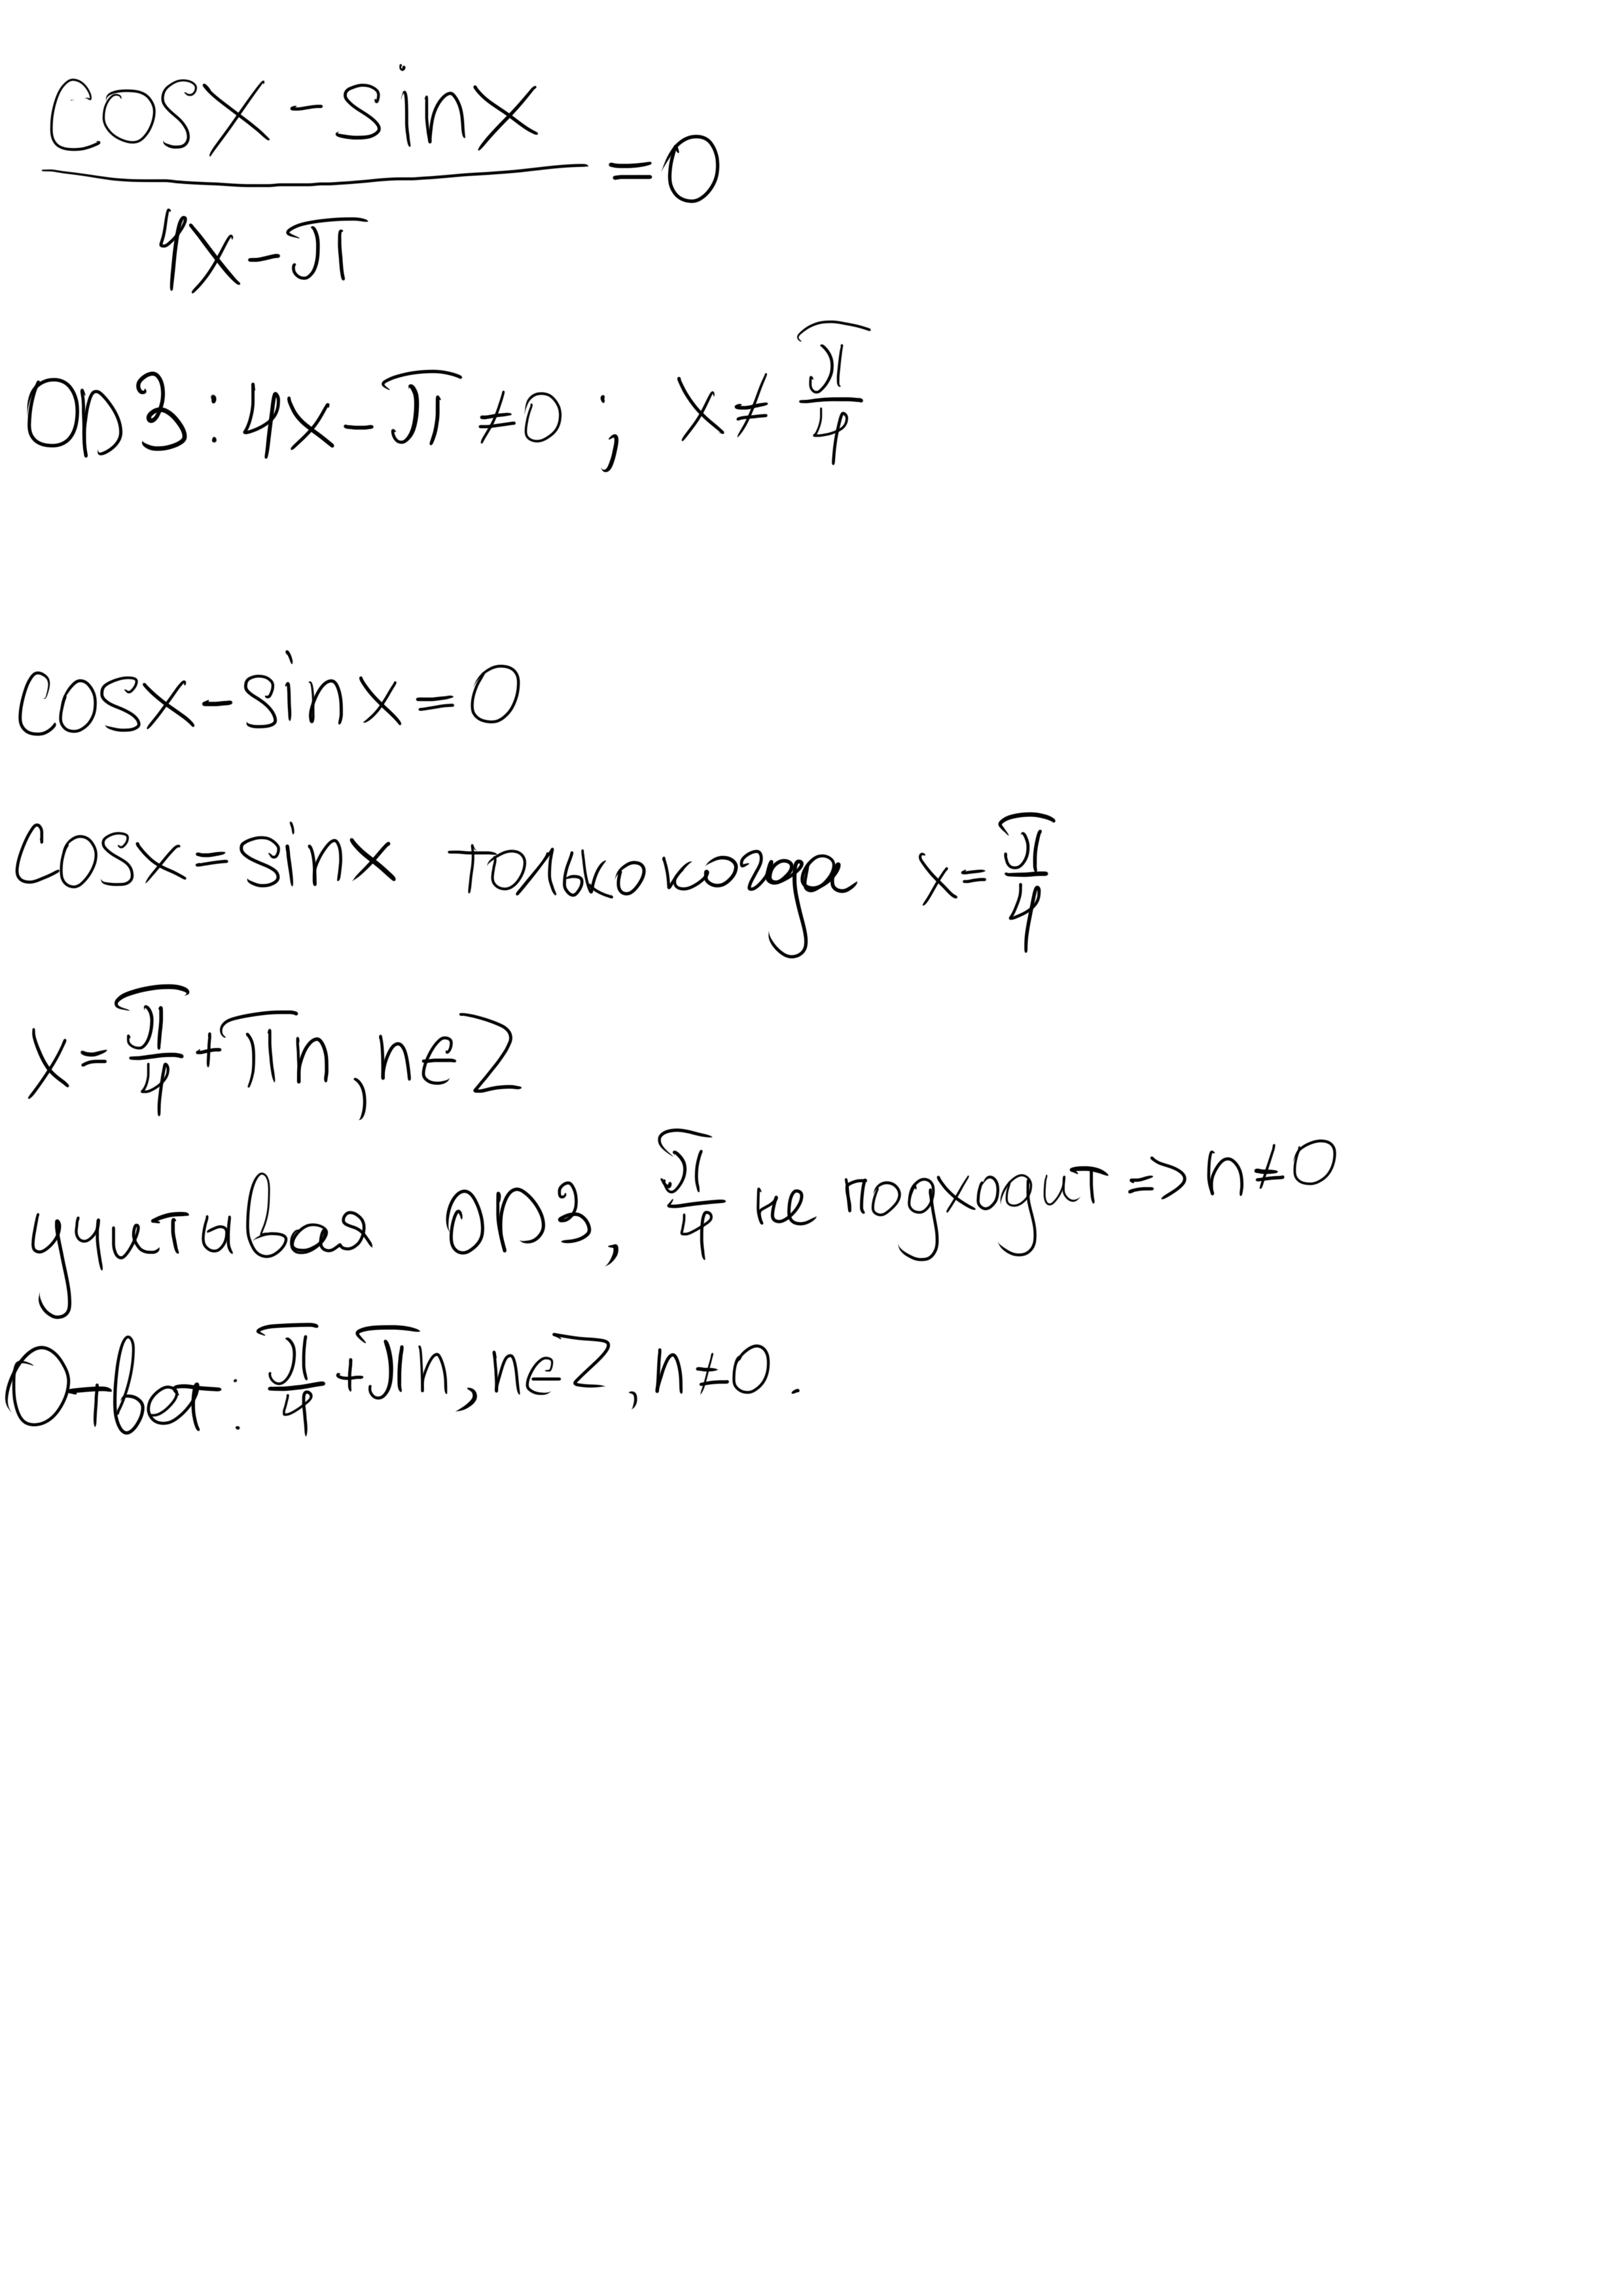 cosx-sinx
=0
4x-π
ОDЗ: 4x-π≠0; x≠π/4
cosx-sinx=0
cosx=sinx только когда x=π/4
x=π/4+πn, n∈Z
учитывая ОDз, π/4 не подходит => n≠0
Ответ: π/4+πn, n∈Z, n≠0.